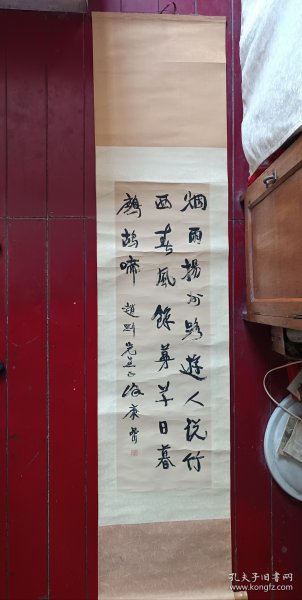 烟雨扬州路游人悦竹
西春风余萋草日暮
鹧鸪啼
赵 先生正 徐康
孔夫子旧书网
www.kongfz.com